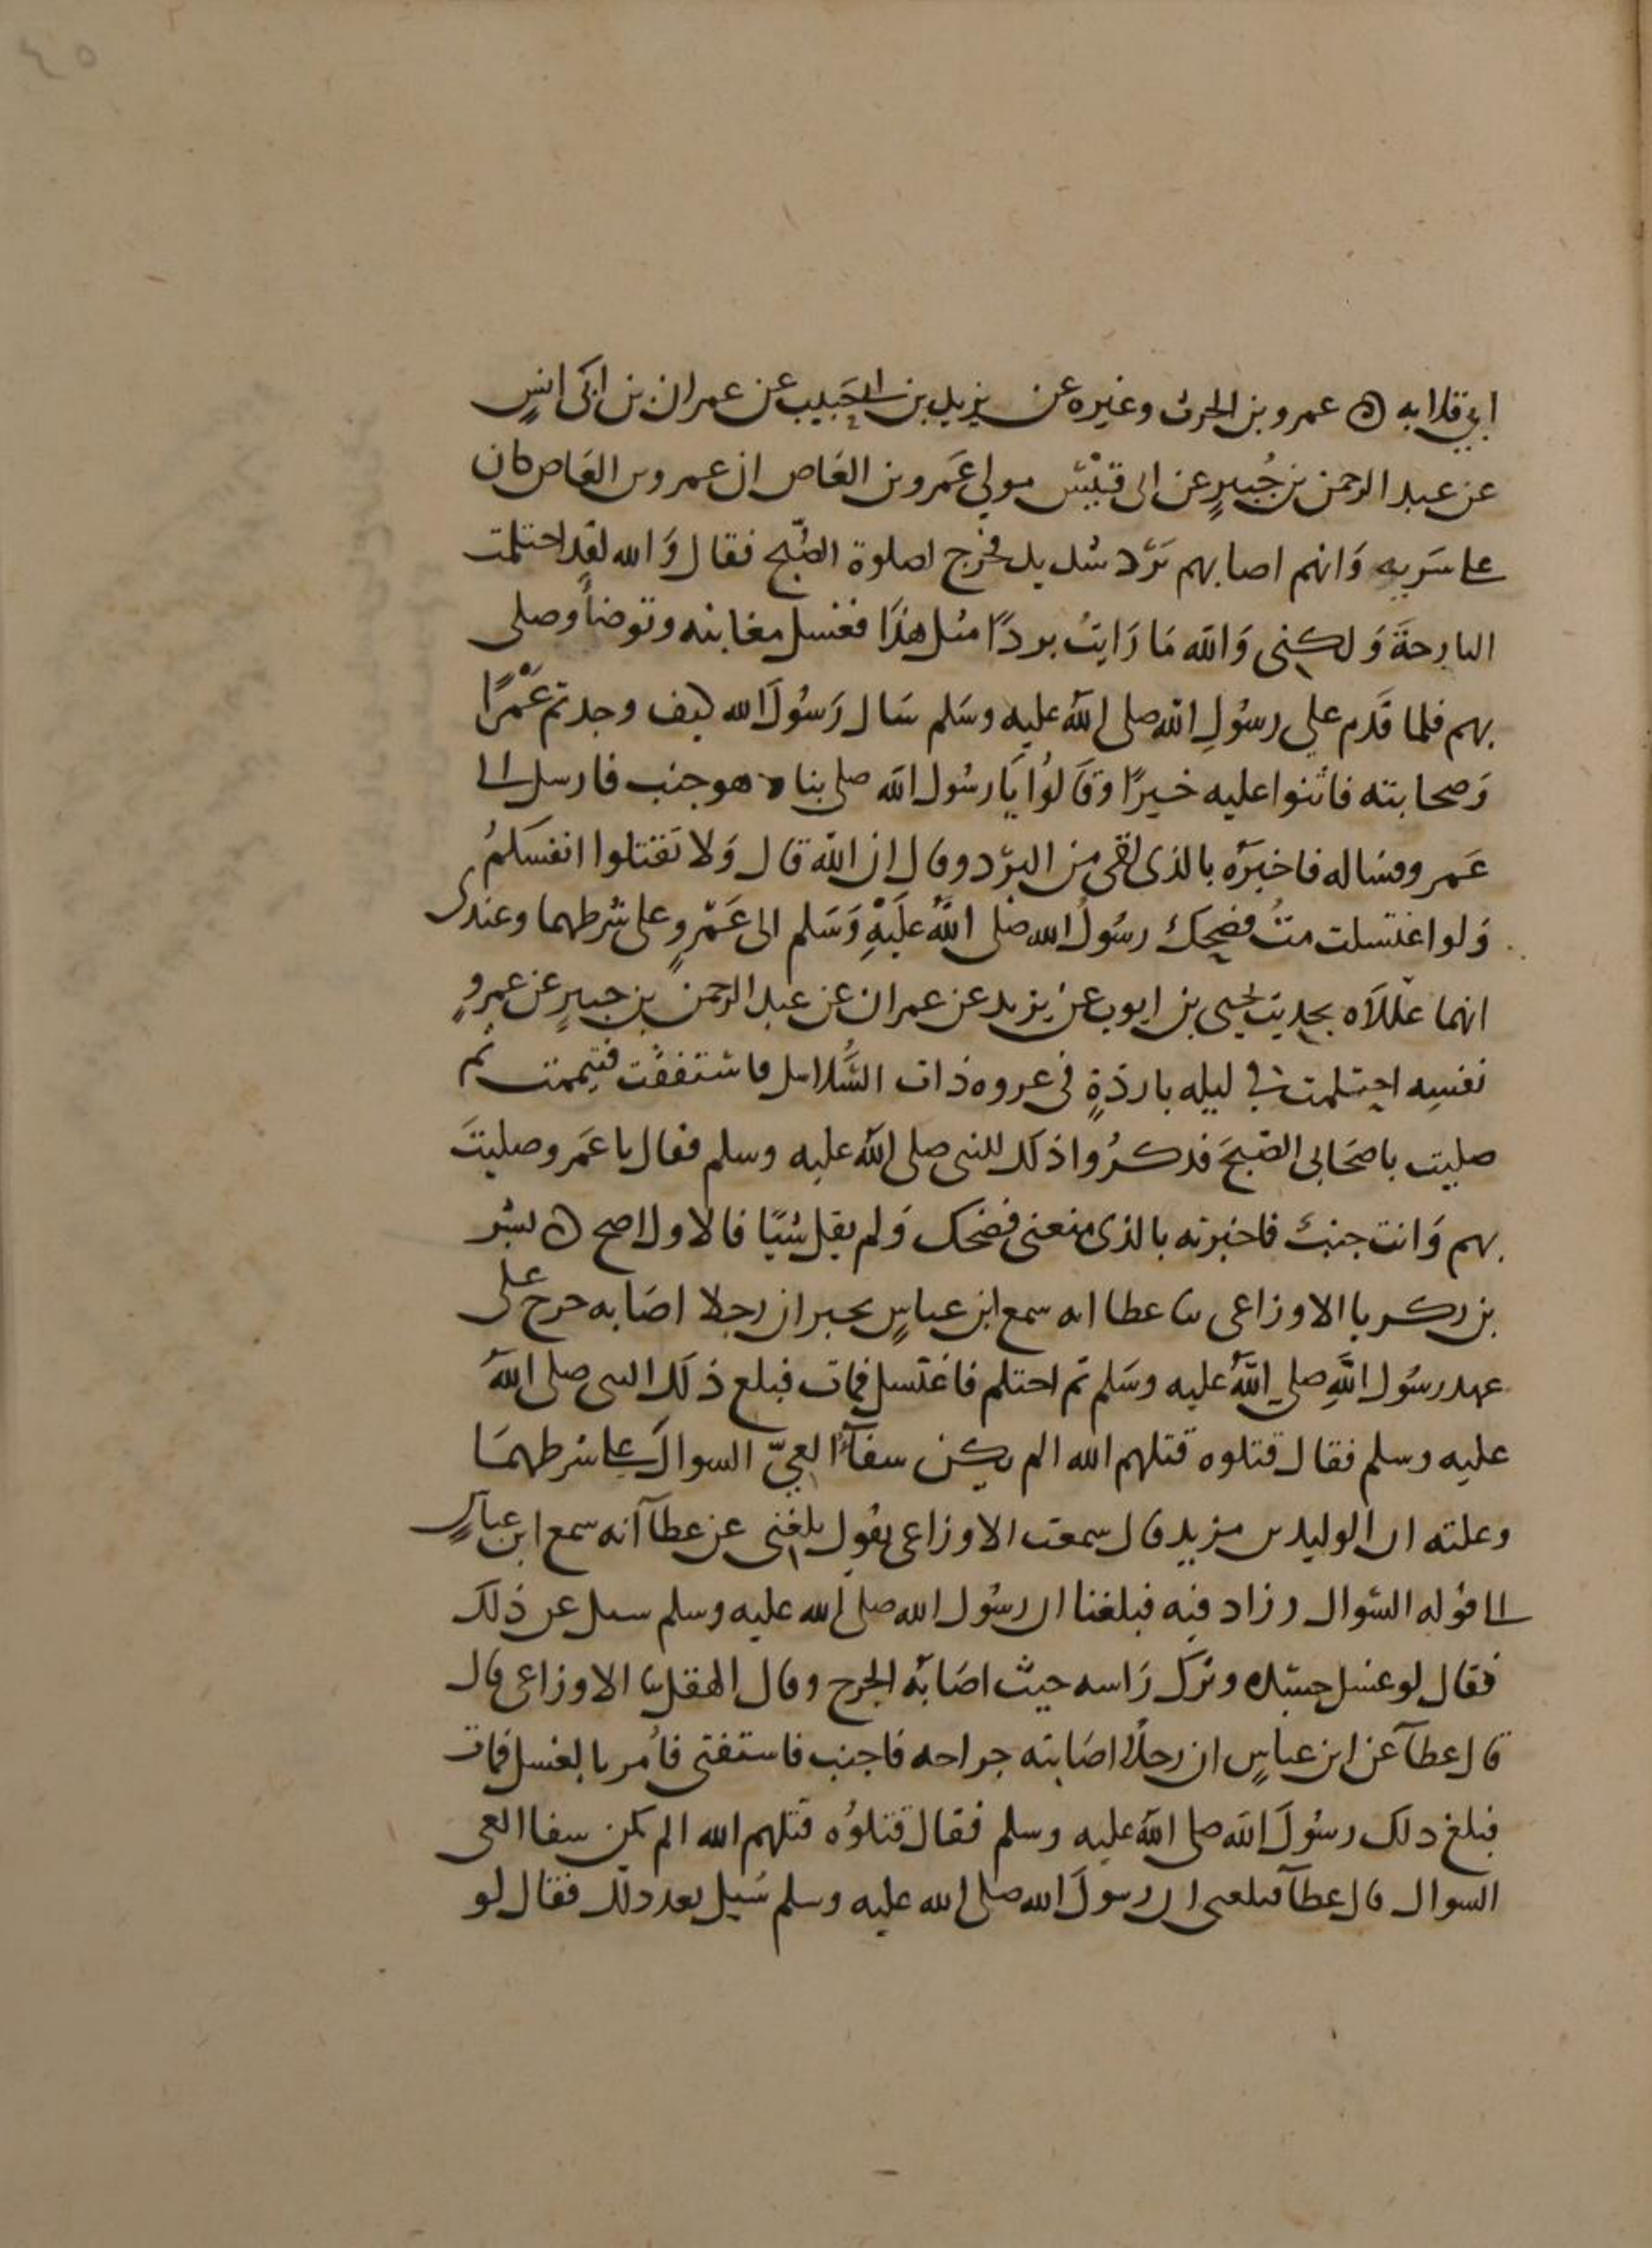 ٤٥
ابي قلابه ه عمرو بن الحرث وغيره عن يزيد بن ابي حبيب عن عمران بن ابي انسٍ
عن عبد الرحمن بن جُبيرٍ عن ابى قيْسٍ مولى عَمرو بن العَاص ان عمرو بن العَاص كان
على سَريه وَانهم اصابهم بَرْد شديد فخرج لصلوة الصّبح فقال وَالله لقدِ احتلمت
البارحةَ وَلكنى وَالله مَا رَايتُ بردًا مثل هَذَا فغسل مغابنه وتوضأ وصلى
بهم فلما قَدم على رسُولِ الله صلى اللهُ عليه وسَلم سَال رَسُولَ الله كيف وجدتم عَمْرًا
وَصحابته فاثنوا عليه خيرًا وقَالوُا يَا رسُول الله صلى بنا وهو جنب فارسل الى
عَمرو فسَاله فاخبَره بالذى لقى من البرْد وقال ان الله قال وَلا تَقتلوا انفسَكمُ
وَلو اغتسلت متُ فضحِك رسُولُ الله صلى اللهُ عليْهِ وَسَلم الى عَمْرٍو على شرطهما وعندى
انهما عَلّلاه بحديث يحيى بن ايوب عن يزيد عن عمران عن عبد الرحمن بن جبيرٍ عن عمروٍ
نفسِه احتلمت فى ليله باردةٍ فى غزوه ذات السُّلاسل فاشفقت فتيممت ثم
صليت باصحَابى الصّبحَ فذكرُوا ذلك للنبى صلى اللهُ عليه وسلم فقال يا عَمرو صليتَ
بهم وَانت جنبٌ فاخبرته بالذى منعنى فضحك وَلم يقل شيًا فالاول اصح ه بشر
بن بكر با الاوزاعى ثنا عطا انه سمع ابن عباسٍ يخبر ان رجلا اصَابه جرح على
عهد رسُول اللهِ صلى اللهُ عليه وسَلم ثم احتلم فاغتسل فمات فبلغ ذلك النبى صلى اللهُ
عليه وسلم فقال قتلوه قتلهم الله الم يكن شفآءُ العِيّ السوال على شرطهمَا
وعلته ان الوليد بن مزيد قال سمعت الاوزاعى يقُول بلغنى عن عطآ انه سمع ابن عباسٍ
الى قوله السُوال وزاد فيه فبلغنا ان رسُول الله صلى الله عليه وسلم سيل عن ذلك
فقال لو غسل جسَده وترك رَاسه حيث اصَابهُ الجرح وقال الهقل ثنا الاوزاعى قال
قال عطآ عن ابن عباسٍ ان رجلًا اصَابته جراحه فاجنب فاستفتى فاُمر بالغسل فمات
فبلغ ذلك رسُولَ الله صلى اللهُ عليه وسلم فقال قتلوُه قتلهم الله الم يكن شفا العى
السوال قال عطآ فبلغنى ان رسولَ الله صلى الله عليه وسلم سُيل بعد ذلك فقال لو